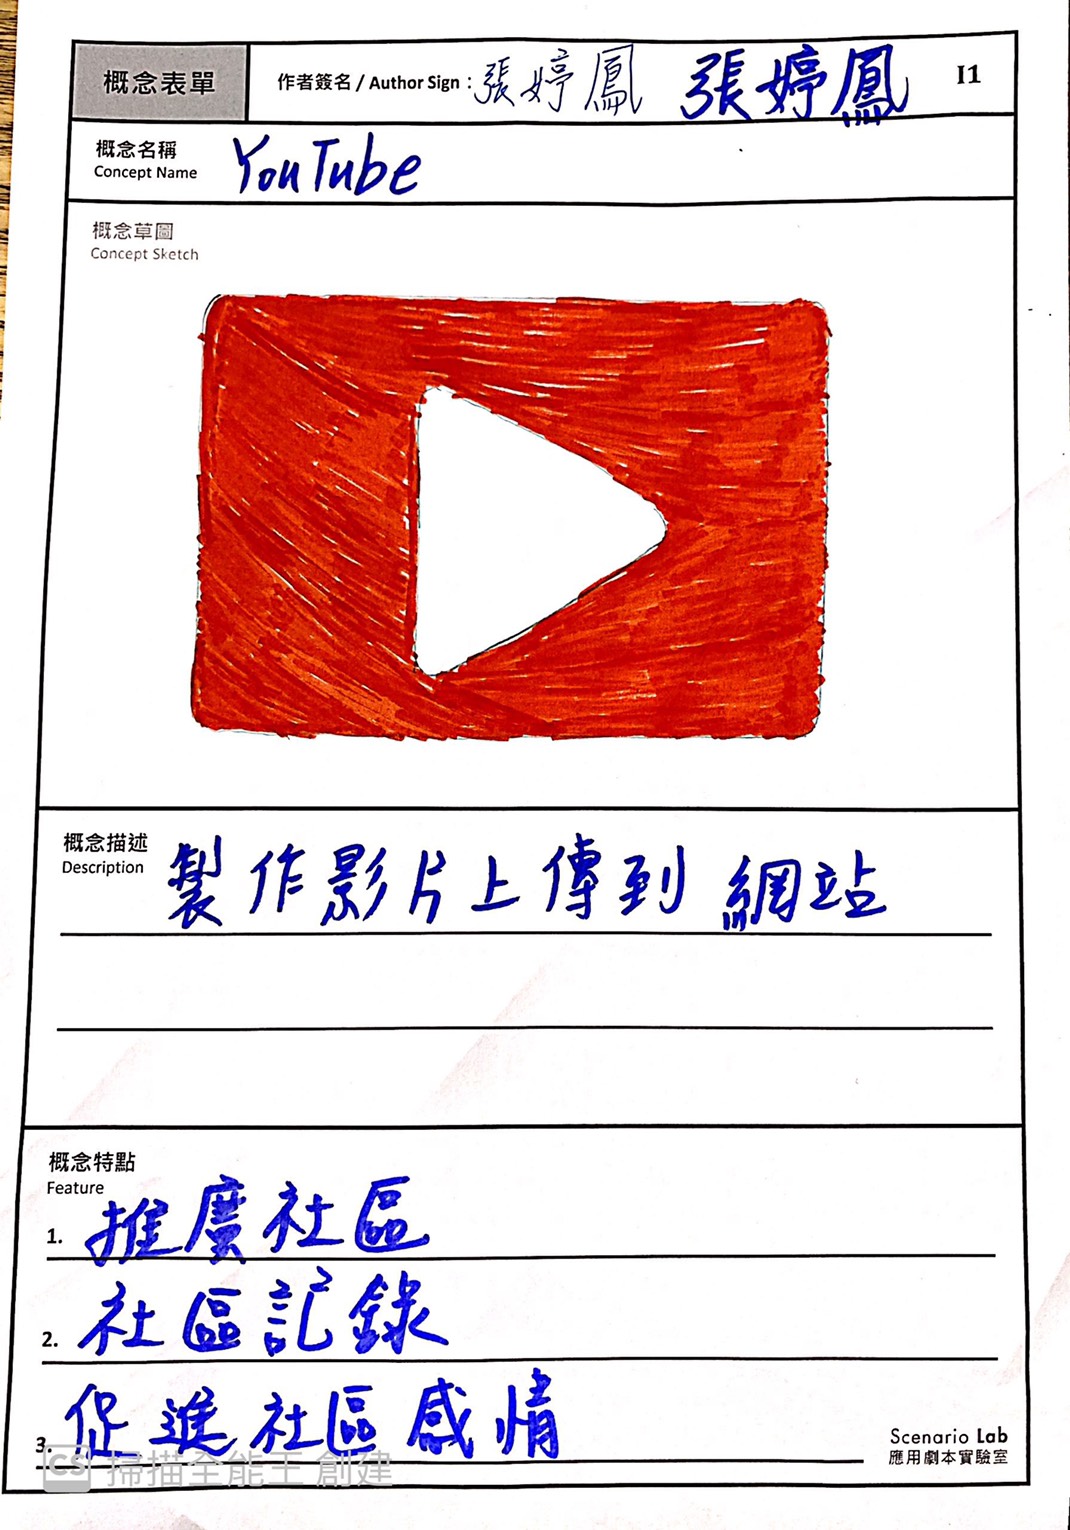 概念表單
作者簽名 / Author Sign : 張婷鳳 張婷鳳 I1
概念名稱
Concept Name
YouTube
概念草圖
Concept Sketch
概念描述
Description
製作影片上傳到網站
概念特點
Feature
1. 推廣社區
2. 社區記錄
3. 促進社區感情
Scenario Lab
應用劇本實驗室
CS 掃描全能王 創建